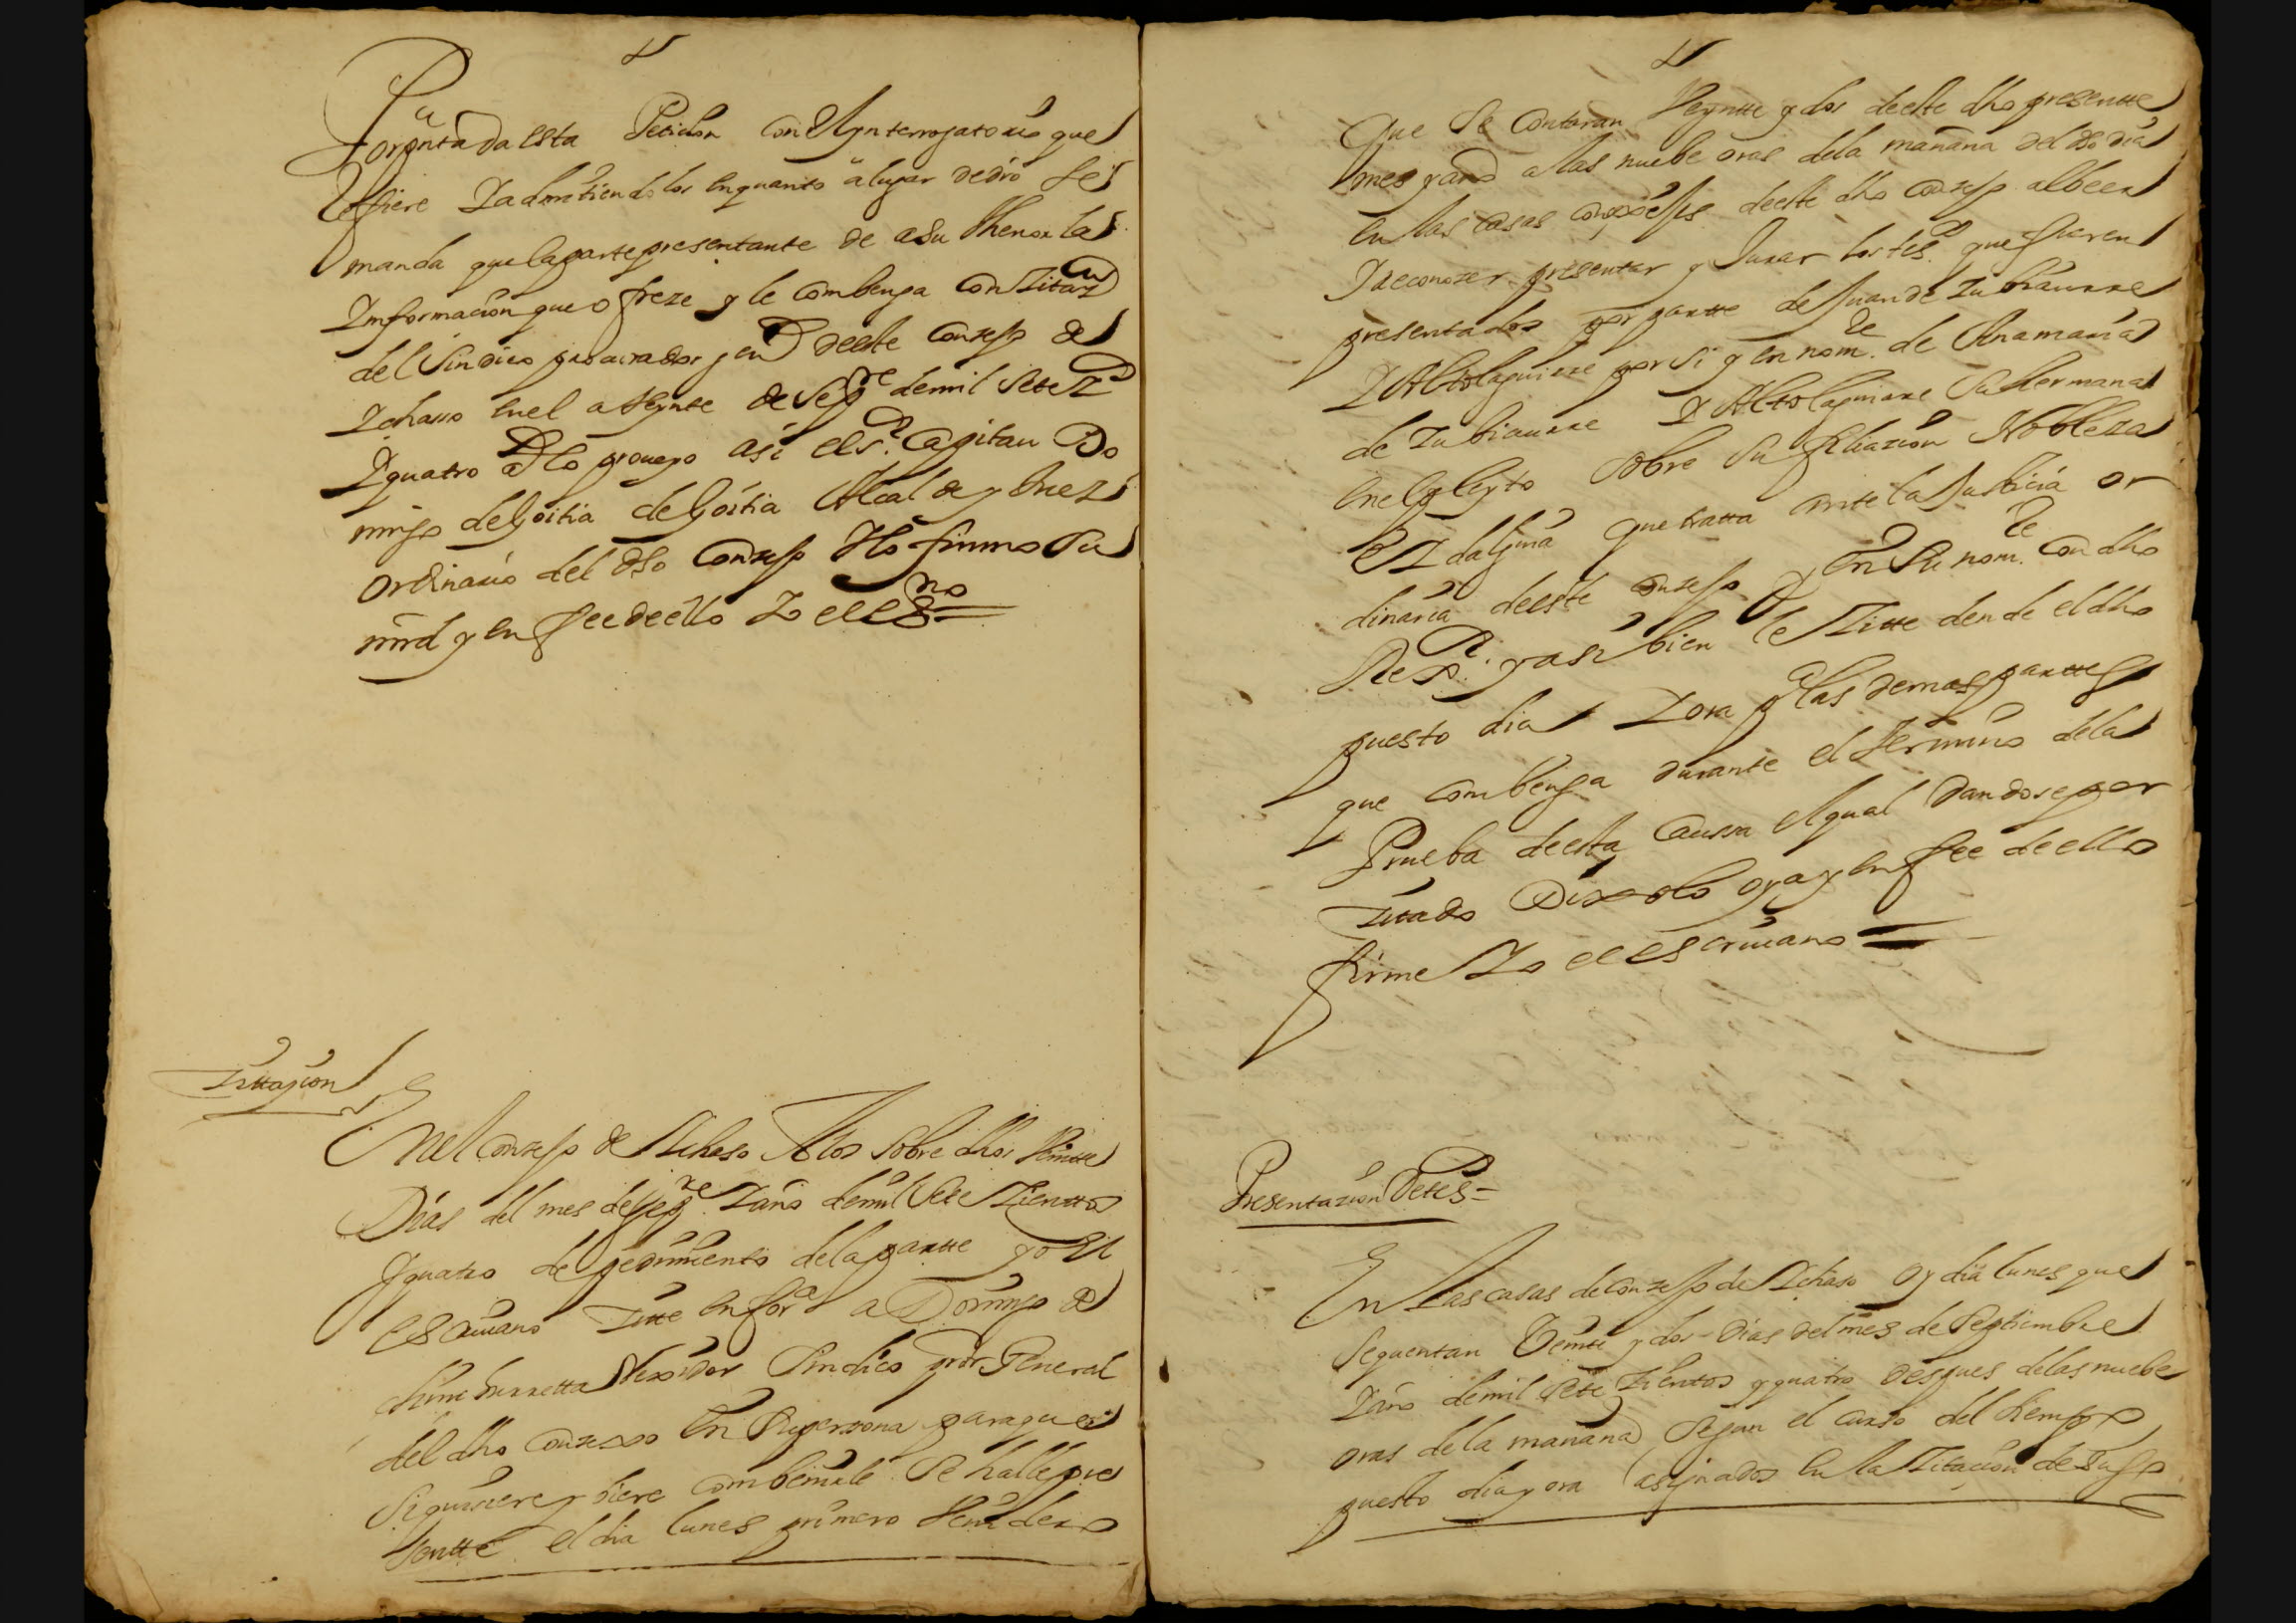 Por pntada esta Peticion con el Ynterrogatorio que
Refiere Y admitiendolos en quanto a lugar de dro se
manda que la parte presentante de a su thenor la
Ymformacion que ofreze y le combenga con Zitaon
del Sindico procurador jen deeste Conzejo de
Ychasso en el a Veynte de Sepre de mil Setezos
Y quatro Y lo proueyo asi el sr Capitan Do
mingo de Goitia de Goitia Alcalde y Juez
ordinario del dho Conzejo Y lo firmo Su
mrd y en fee de ello Yo el esno =
Zittazion
En el Conzejo de Ychaso Alto Sobre dhos Veinte
Dias del mes de Sepre Y año de mil Sete Zientos
Y quatro de pedimiento de la partte yo el
escriuano Zite en forma a Domingo de
Rexidor Sindico pror General
del dho Conzexo en Su persona para que
Si quisiere y biere combenirle Se halle pre
sentte el dia lunes primero Veni dero
Que Se Contaran Veyntte y dos deeste dho presentte
mes y año a las nuebe oras de la mañana del dho dia
en las Casas conzejiles deeste dho Conzejo al beer
Y reconozer presentar y Jurar los tesos que fueren
presentados por partte de Juan de Zubiaurre
Y Altolaguirre por Si y en nome de Ana maria
de Zubiaurre Y Altolaguirre Su hermana
en el pleyto Sobre Su filiazion Nobleza
e Ydalguia que tratta ante la Justicia or
dinaria deeste Conzejo Y en Su nome Con dho
y asi bien le Zitte den de el dho
puesto dia Y ora para las demas parttes
que combenga durante el termino de la
Prueba deesta Caussa el qual dandose por
Zitado Dixo lo oya y en fee de ello
firme Yo el escriuano =
Presentazion De tesos =
En Las casas de Conzejo de Ychaso oy dia lunes que
Se quentan Veinte y dos Dias del mes de Septiembre
Y año de mil Sete Zientos y quatro despues de las nuebe
oras de la mañana Segun el curso del tiempo
puesto dia y ora asignados en la Zitacion de Suso